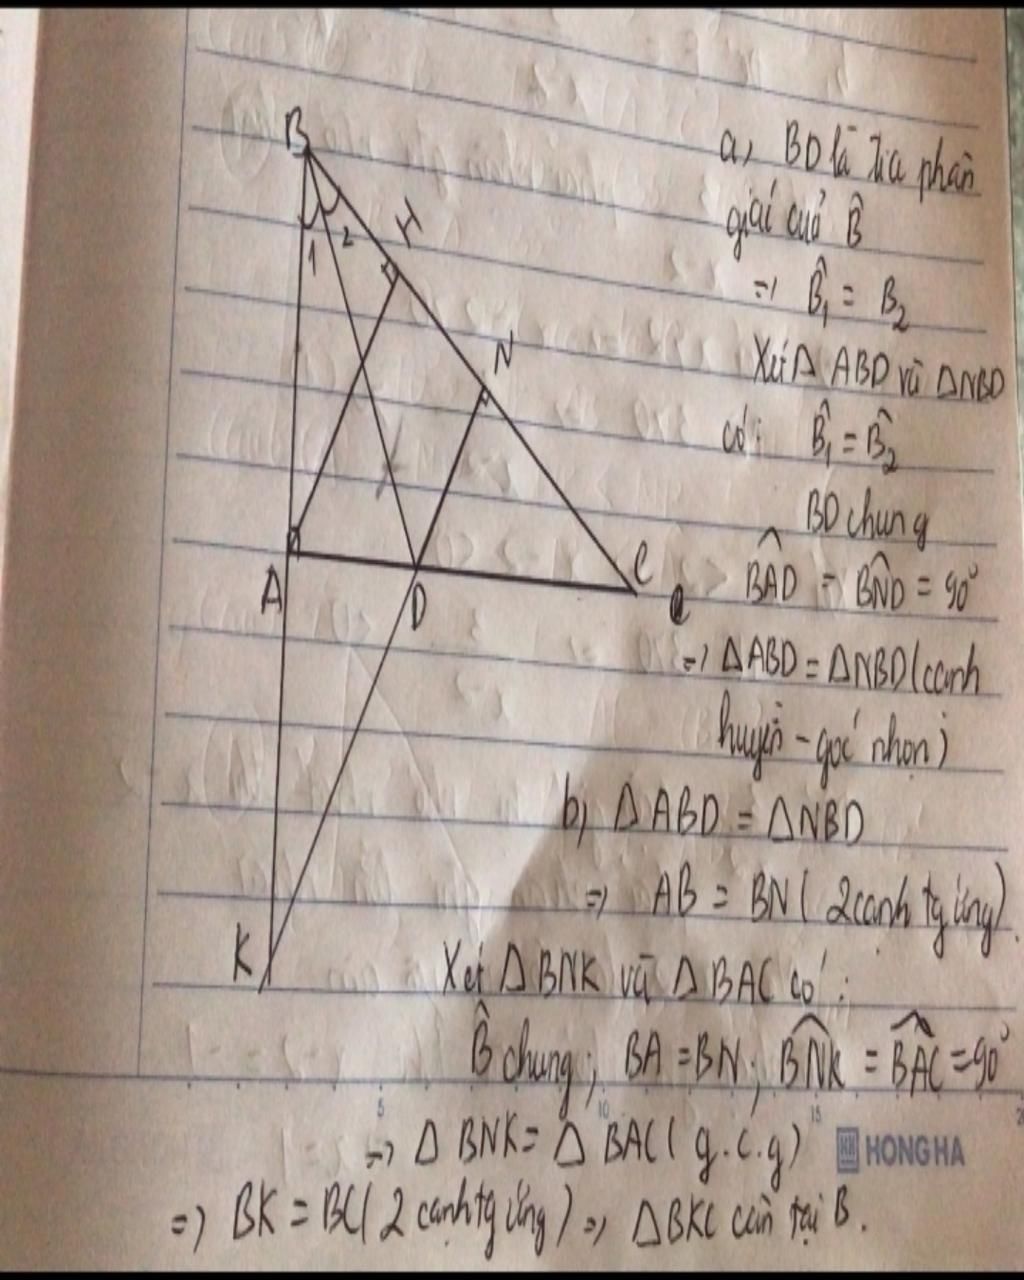 B
1 2
H
N
A
D
C
K
a, BD là tia phân
giác cuả B̂
=> B̂₁ = B₂
Xét Δ ABD và ΔNBD
có: B̂₁ = B̂₂
BD chung
BAD̂ = BND̂ = 90°
=> ΔABD = ΔNBD (cạnh
huyền - góc nhọn)
b, Δ ABD = ΔNBD
=> AB = BN ( 2 cạnh tg ứng)
Xét Δ BNK và Δ BAC có :
B̂ chung; BA = BN; BNK̂ = BAĈ = 90°
=> Δ BNK = Δ BAC ( g.c.g)
=> BK = BC( 2 cạnh tg ứng) => ΔBKC cân tại B.
5 10 15
HONG HA